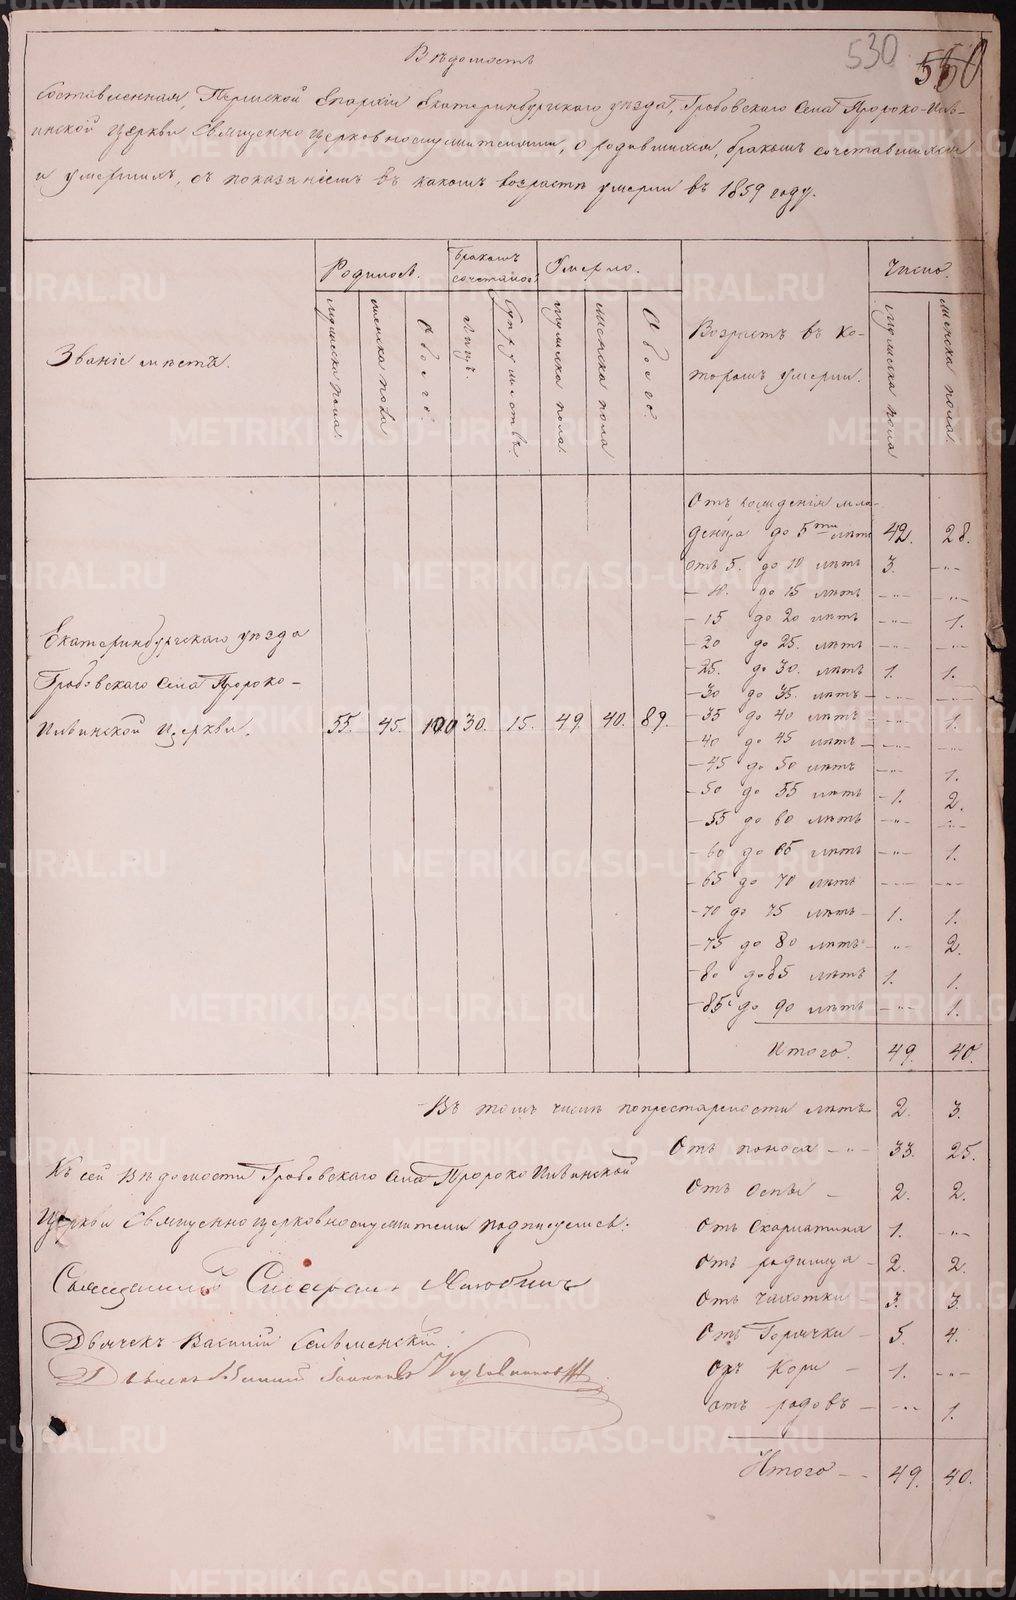 530
550
Вѣдомость
Составленная, Пермской Епархіи Екатеринбургскаго уѣзда, Гробовскаго Села Пророко-Иль-
инской Церкви Священноцерковнослужителями, о родившихся, бракомъ сочетавшихся
и умершихъ, съ показаніемъ въ какомъ возрастѣ умерли въ 1859 году.
Званіе мѣстъ.
Родилось.
Бракомъ сочеталось
Умерло.
Возрастъ въ ко-
торомъ умерли.
Число.
мужеска пола
женска пола
Обоего
Лицъ.
Супружествъ.
мужеска пола
женска пола
Обоего.
мужеска пола
женска пола.
Екатеринбургскаго уѣзда
Гробовскаго Села Пророко-
Ильинской Церкви.
55. 45. 100 30. 15. 49 40. 89.
Отъ рожденія мла-
денца до 5ти лѣтъ 42. 28.
отъ 5. до 10 лѣтъ 3. -"-
- 10. до 15 лѣтъ -"- -"-
- 15 до 20 лѣтъ -"- 1.
- 20 до 25. лѣтъ -"- -"-
- 25. до 30. лѣтъ 1. 1.
- 30 до 35. лѣтъ -"- -"-
- 35 до 40 лѣтъ -"- 1.
- 40 до 45 лѣтъ -"- -"-
- 45 до 50 лѣтъ -"- 1.
- 50 до 55 лѣтъ 1. 2.
- 55 до 60 лѣтъ -"- -"-
- 60 до 65 лѣтъ -"- 1.
- 65 до 70 лѣтъ -"- -"-
- 70 до 75 лѣтъ 1. 1.
- 75 до 80 лѣтъ -"- 2.
- 80 до 85 лѣтъ 1. 1.
- 85 до 90 лѣтъ -"- 1.
Итого. 49. 40.
Въ томъ числѣ попрестарелости лѣтъ 2. 3.
Отъ поноса -"- 33. 25.
Отъ Оспы - 2. 2.
Отъ Скарлатина 1. -"-
Отъ родимца - 2. 2.
Отъ чахотки - 3. 3.
Отъ Горячки - 5. 4.
Отъ Кори - 1. -"-
отъ родовъ - -"- 1.
Итого - - 49. 40.
Къ сей Вѣдомости Гробовскаго Села Пророко Ильинской
Церкви Священноцерковнослужители подписуемся:
Священникъ
Дьячекъ Василій
METRIKI.GASO-URAL.RU